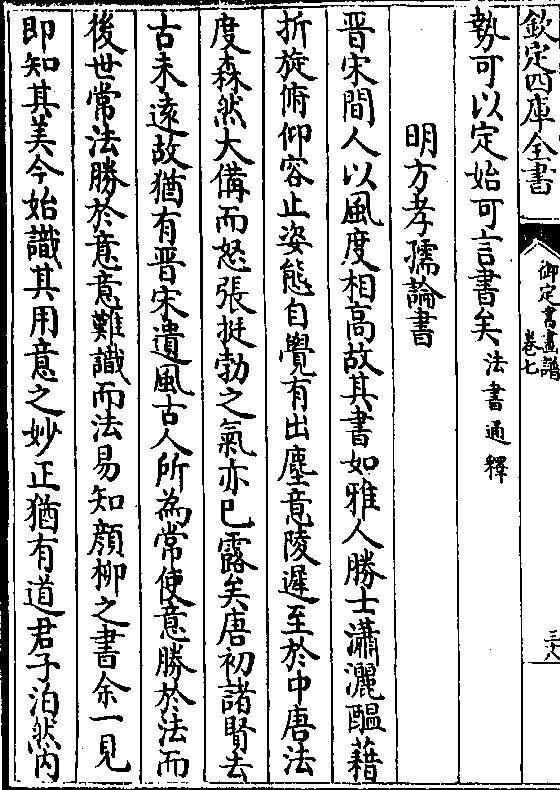 欽定四庫全書
御定書畫譜
卷七
三八
勢可以定始可言書矣法書通釋
明方孝孺論書
晉宋間人以風度相高故其書如雅人勝士瀟灑醞藉
折旋俯仰容止姿態自覺有出塵意陵遲至於中唐法
度森然大備而怒張挺勃之氣亦已露矣唐初諸賢去
古未遠故猶有晉宋遺風古人所為常使意勝於法而
後世常法勝於意意難識而法易知顔柳之書余一見
即知其美今始識其用意之妙正猶有道君子泊然內